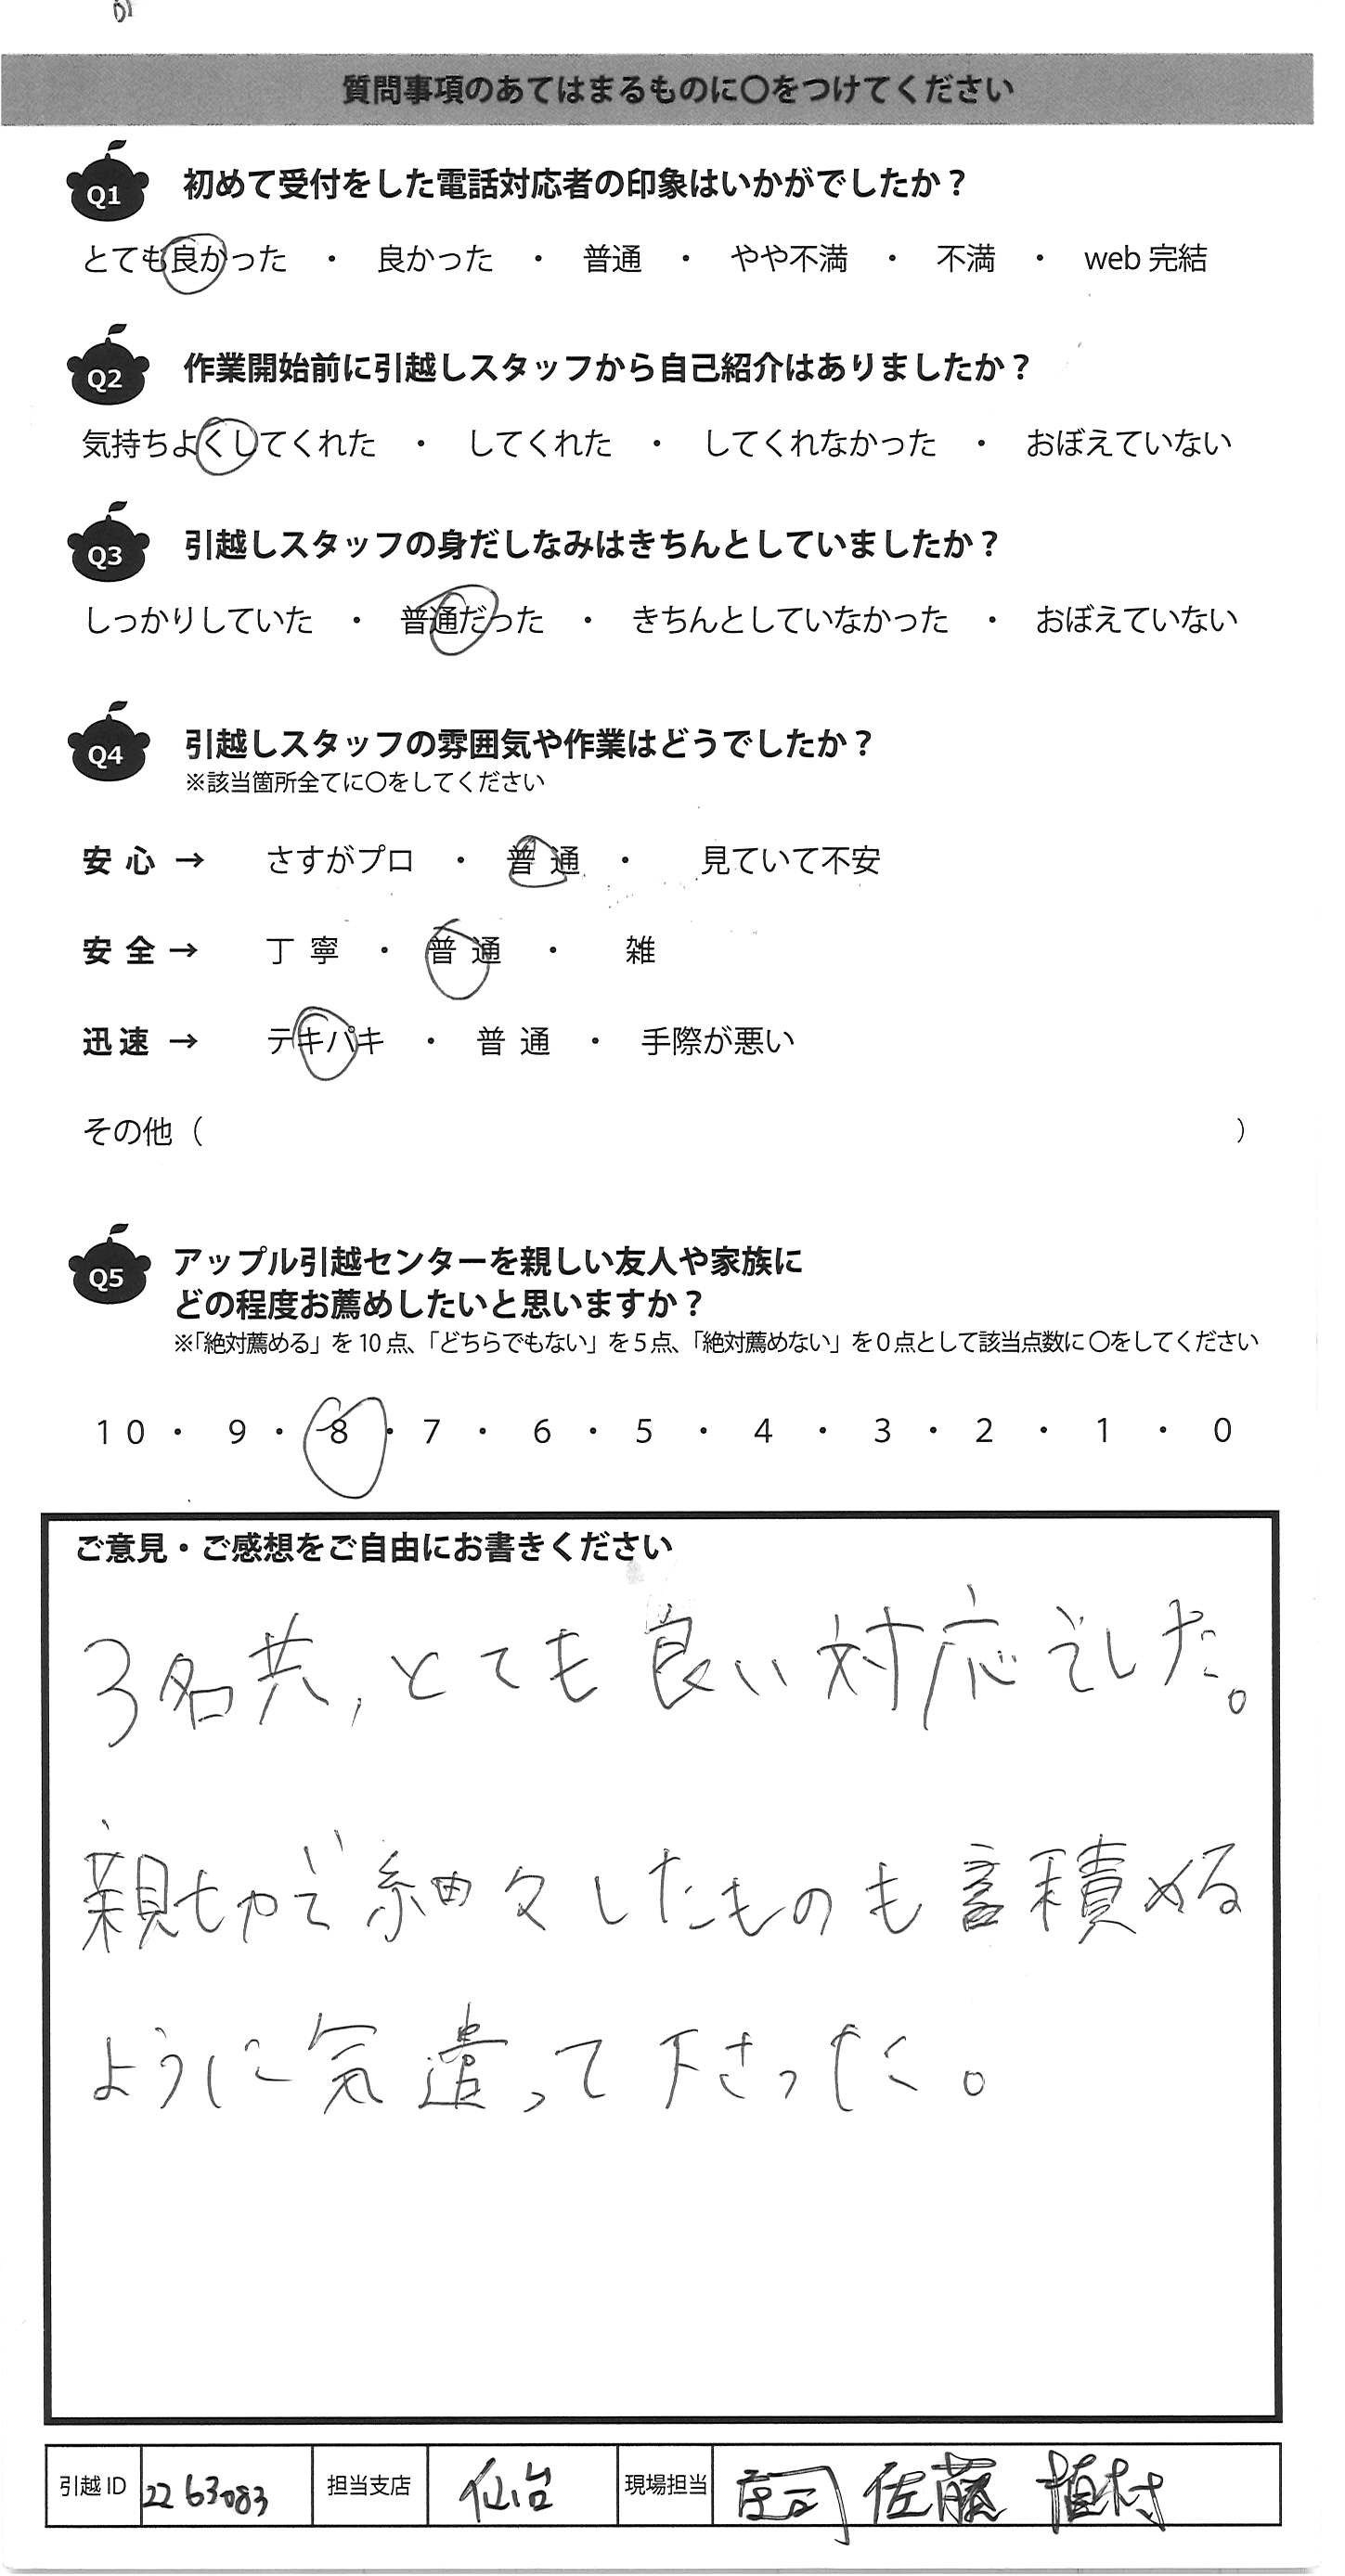 質問事項のあてはまるものに〇をつけてください
Q1 初めて受付をした電話対応者の印象はいかがでしたか？
とても良かった ・ 良かった ・ 普通 ・ やや不満 ・ 不満 ・ web 完結
Q2 作業開始前に引越しスタッフから自己紹介はありましたか？
気持ちよくしてくれた ・ してくれた ・ してくれなかった ・ おぼえていない
Q3 引越しスタッフの身だしなみはきちんとしていましたか？
しっかりしていた ・ 普通だった ・ きちんとしていなかった ・ おぼえていない
Q4 引越しスタッフの雰囲気や作業はどうでしたか？
※該当箇所全てに〇をしてください
安心 → さすがプロ ・ 普通 ・ 見ていて不安
安全 → 丁寧 ・ 普通 ・ 雑
迅速 → テキパキ ・ 普通 ・ 手際が悪い
その他（ ）
Q5 アップル引越センターを親しい友人や家族に
どの程度お薦めしたいと思いますか？
※「絶対薦める」を10点、「どちらでもない」を5点、「絶対薦めない」を0点として該当点数に〇をしてください
10 ・ 9 ・ 8 ・ 7 ・ 6 ・ 5 ・ 4 ・ 3 ・ 2 ・ 1 ・ 0
ご意見・ご感想をご自由にお書きください
3名共、とても良い対応でした。
親切で細々したものも積める
ように気遣って下さった。
引越ID 2263083 担当支店 仙台 現場担当 庄司 佐藤 植村